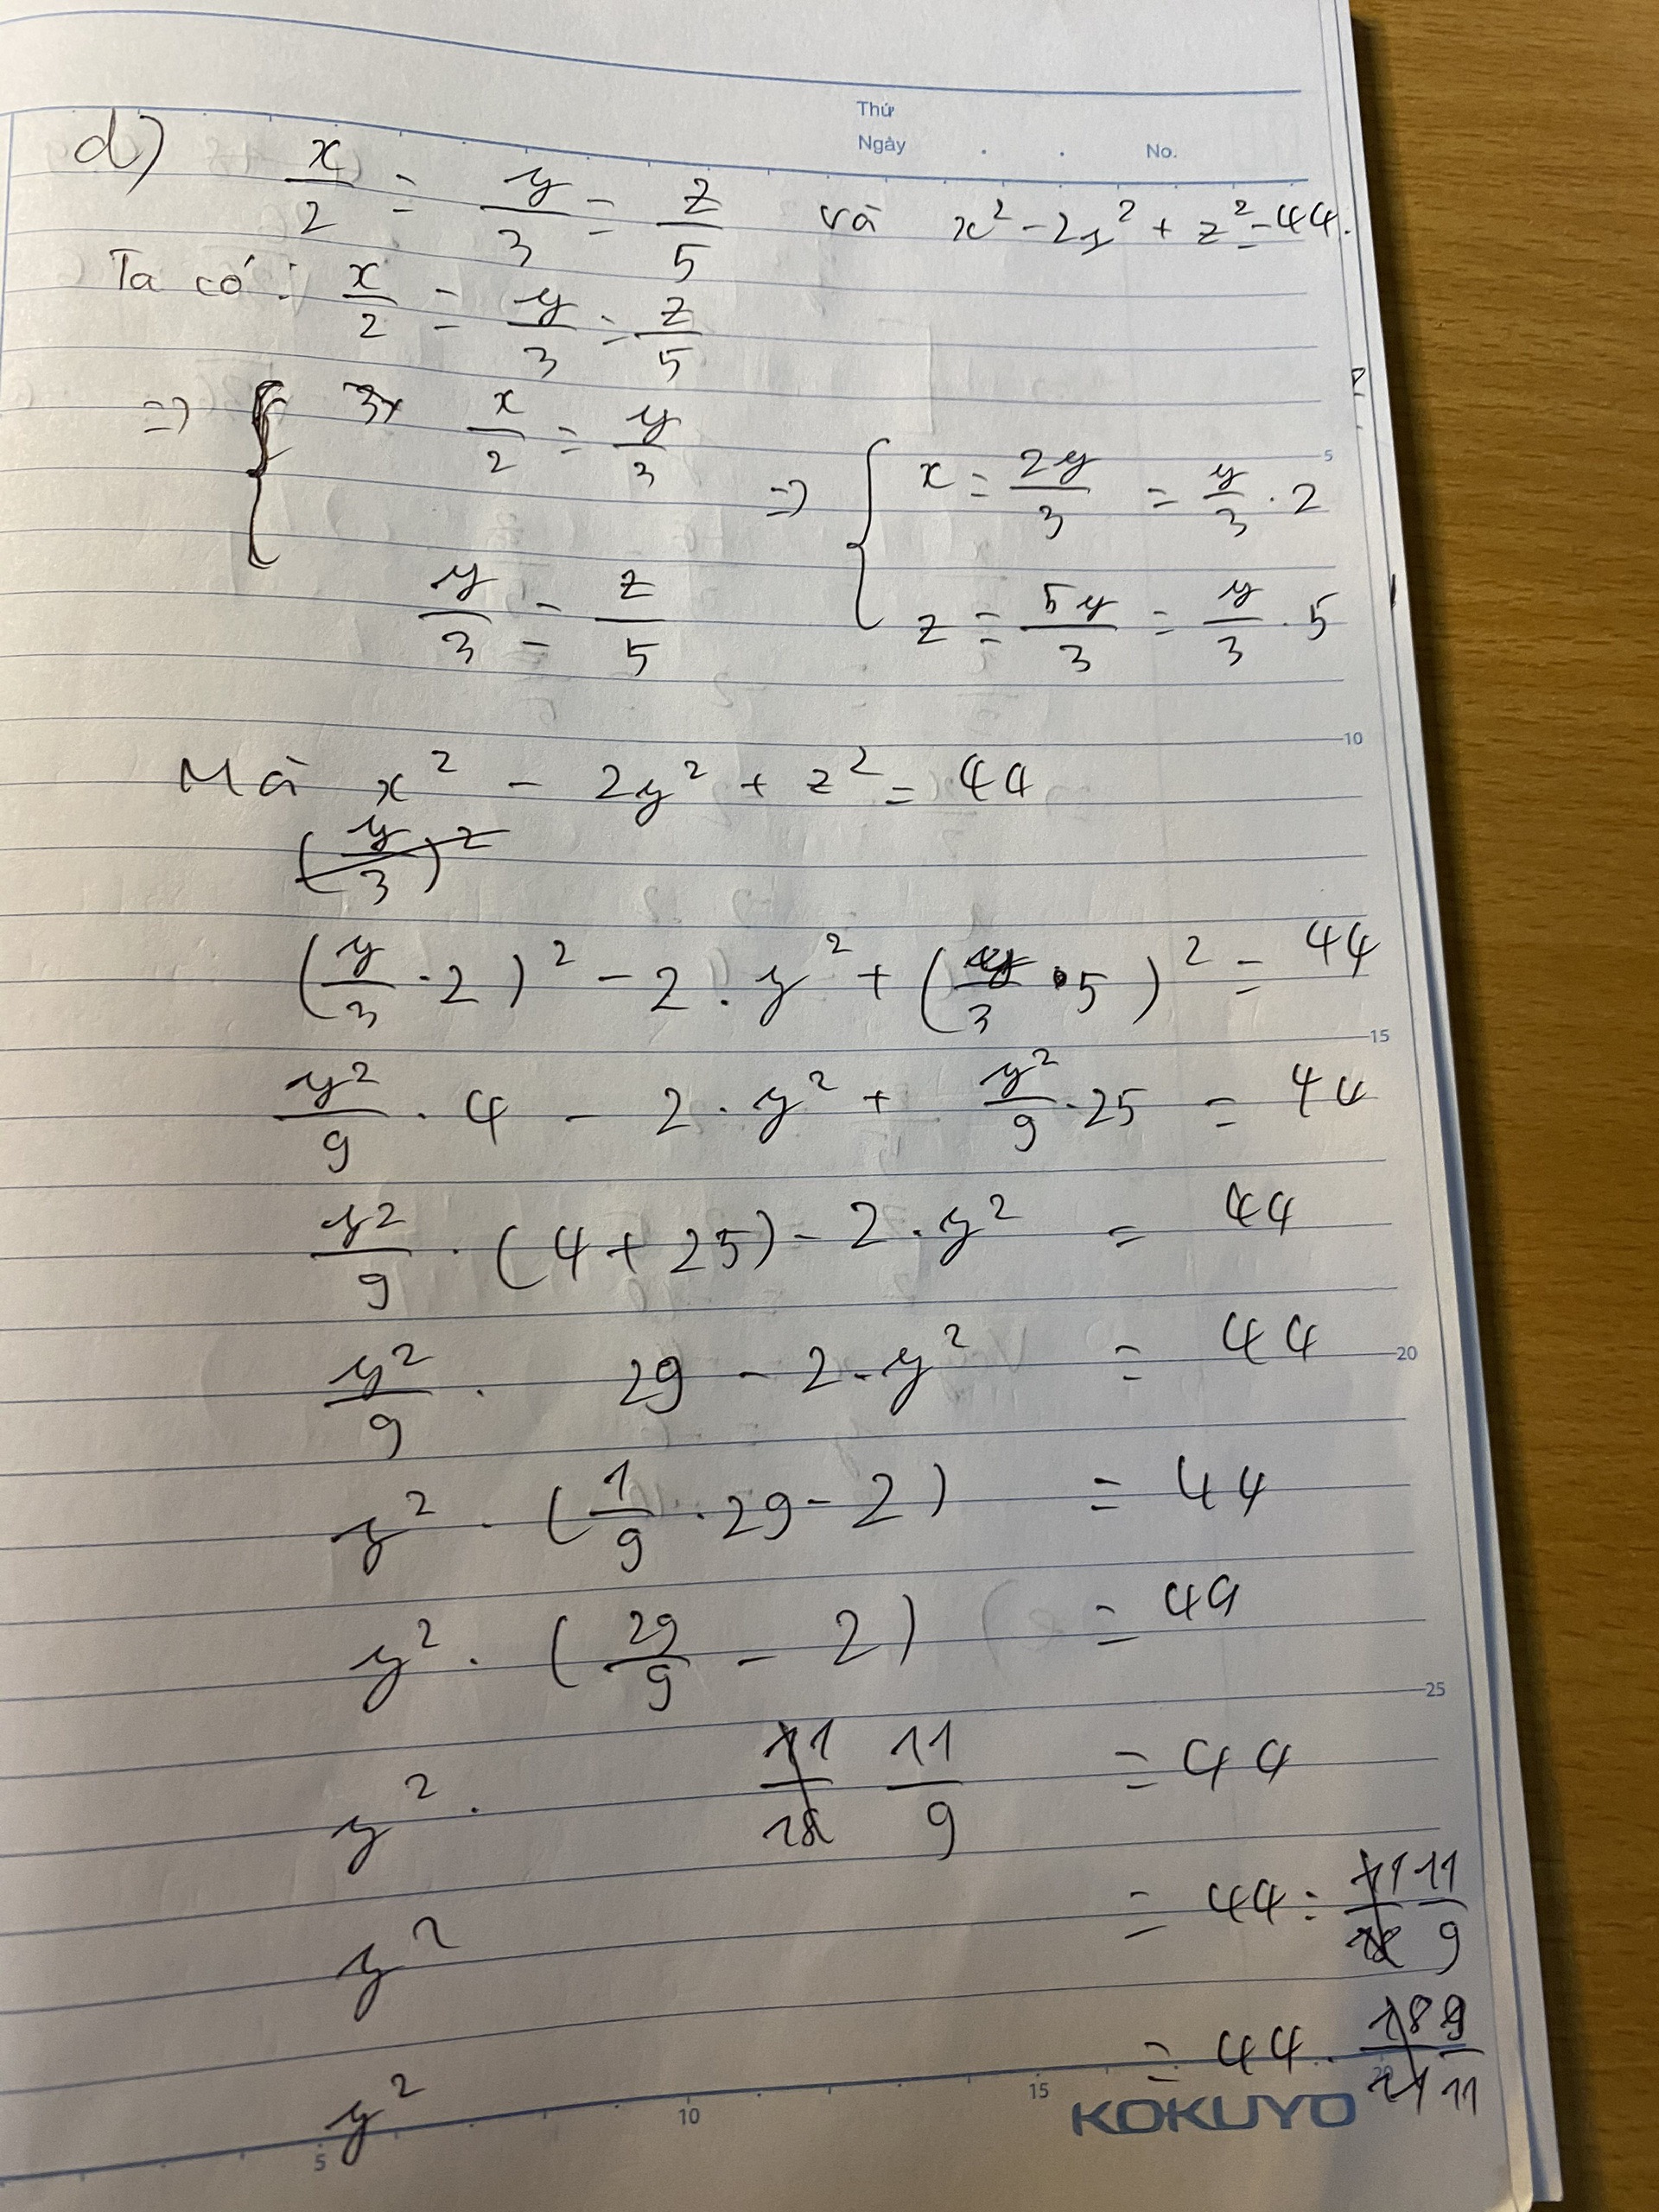 Thứ
Ngày . . No.
d) x/2 = y/3 = z/5 và x² - 2y² + z² = 44.
Ta có: x/2 = y/3 = z/5
=> { x/2 = y/3 => { x = 2y/3 = y/3 . 2
y/3 = z/5 z = 5y/3 = y/3 . 5
Mà x² - 2y² + z² = 44
(y/3)²
(y/3 . 2)² - 2 . y² + (y/3 . 5)² = 44
y²/9 . 4 - 2 . y² + y²/9 . 25 = 44
y²/9 . (4 + 25) - 2 . y² = 44
y²/9 . 29 - 2 . y² = 44
y² . (1/9 . 29 - 2) = 44
y² . (29/9 - 2) = 44
y² . 11/9 = 44
y² = 44 : 11/9
y² = 44 . 9/11
5 10 15 20
KOKUYO
5
10
15
20
25